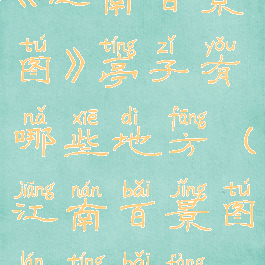 《江南百景
tú tíng zǐ yǒu
图》亭子有
nǎ xiē dì fāng
哪些地方（
jiāng nán bǎi jǐng tú
江南百景图
lán tíng bǎi fàng